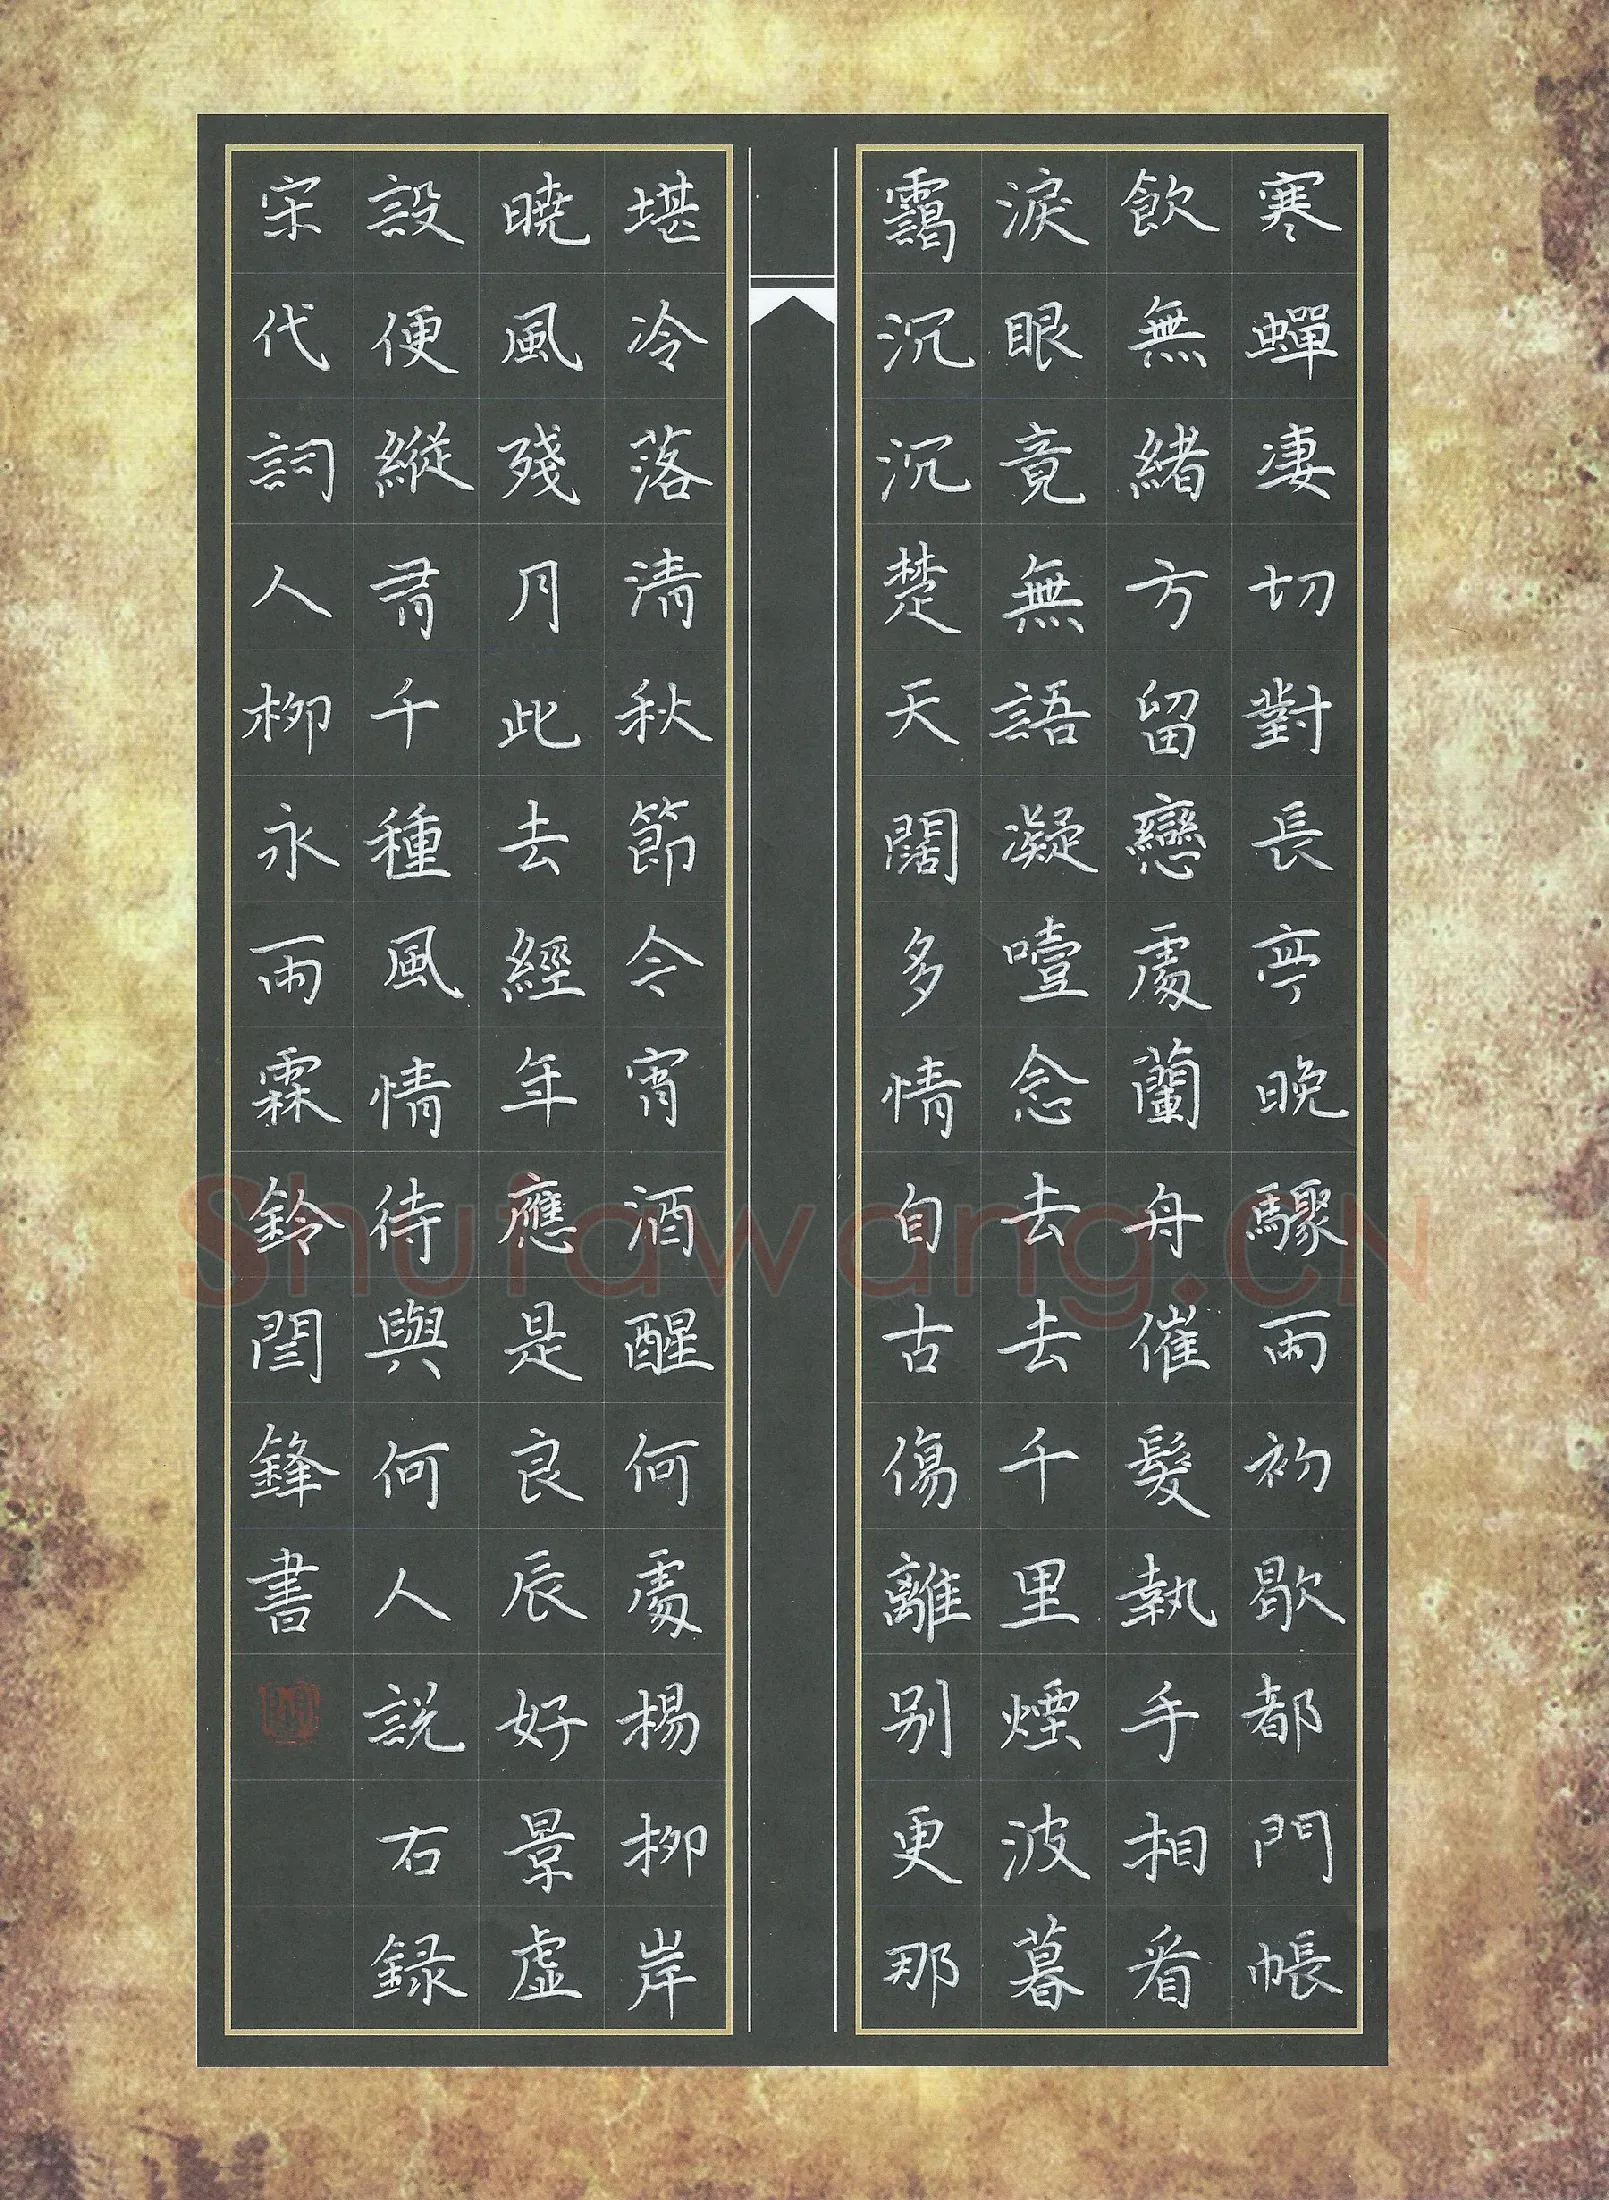 寒蟬凄切對長亭晚驟雨初歇都門帳
飲無緒方留戀處蘭舟催髮執手相看
淚眼竟無語凝噎念去去千里煙波暮
靄沉沉楚天闊多情自古傷離別更那
堪冷落清秋節今宵酒醒何處楊柳岸
曉風殘月此去經年應是良辰好景虛
設便縱有千種風情待與何人說右録
宋代詞人柳永雨霖鈴閆鋒書
Shufawang.CN